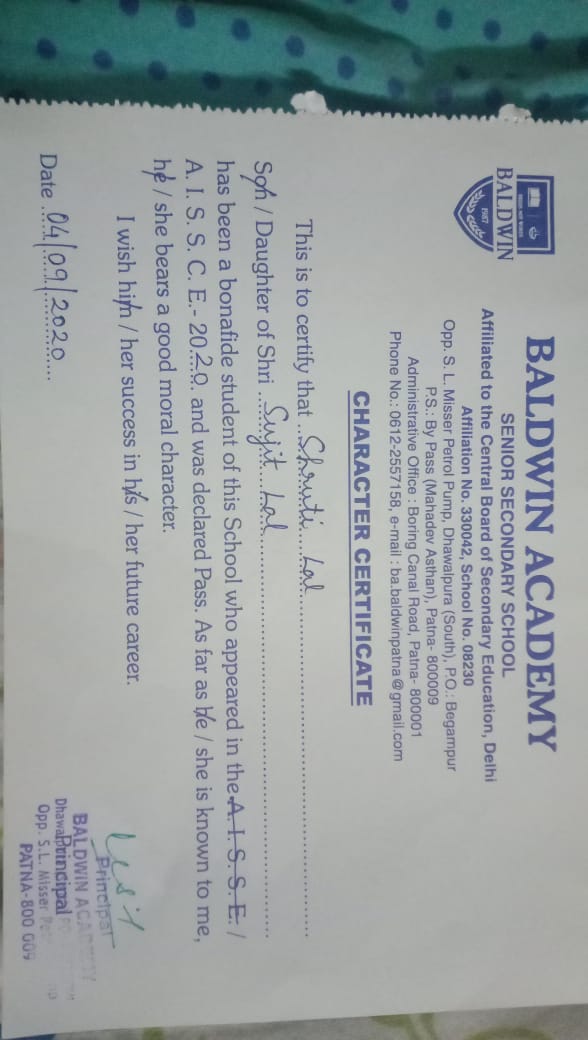 BALDWIN
1987
BALDWIN ACADEMY
SENIOR SECONDARY SCHOOL
Affiliated to the Central Board of Secondary Education, Delhi
Affiliation No. 330042, School No. 08230
Opp. S. L. Misser Petrol Pump, Dhawalpura (South), P.O.: Begampur
P.S.: By Pass (Mahadev Asthan), Patna- 800009
Administrative Office : Boring Canal Road, Patna- 800001
Phone No.: 0612-2557158, e-mail : ba.baldwinpatna@gmail.com
CHARACTER CERTIFICATE
This is to certify that ..Shruti Lal..........
Son / Daughter of Shri ..Sujit Lal..........
has been a bonafide student of this School who appeared in the A. I. S. S. E. /
A. I. S. S. C. E.- 2020 and was declared Pass. As far as he / she is known to me,
he / she bears a good moral character.
I wish him / her success in his / her future career.
Date 04/09/2020
Principal
BALDWIN ACADEMY
Principal
Opp. S.L. Misser
PATNA-800 009